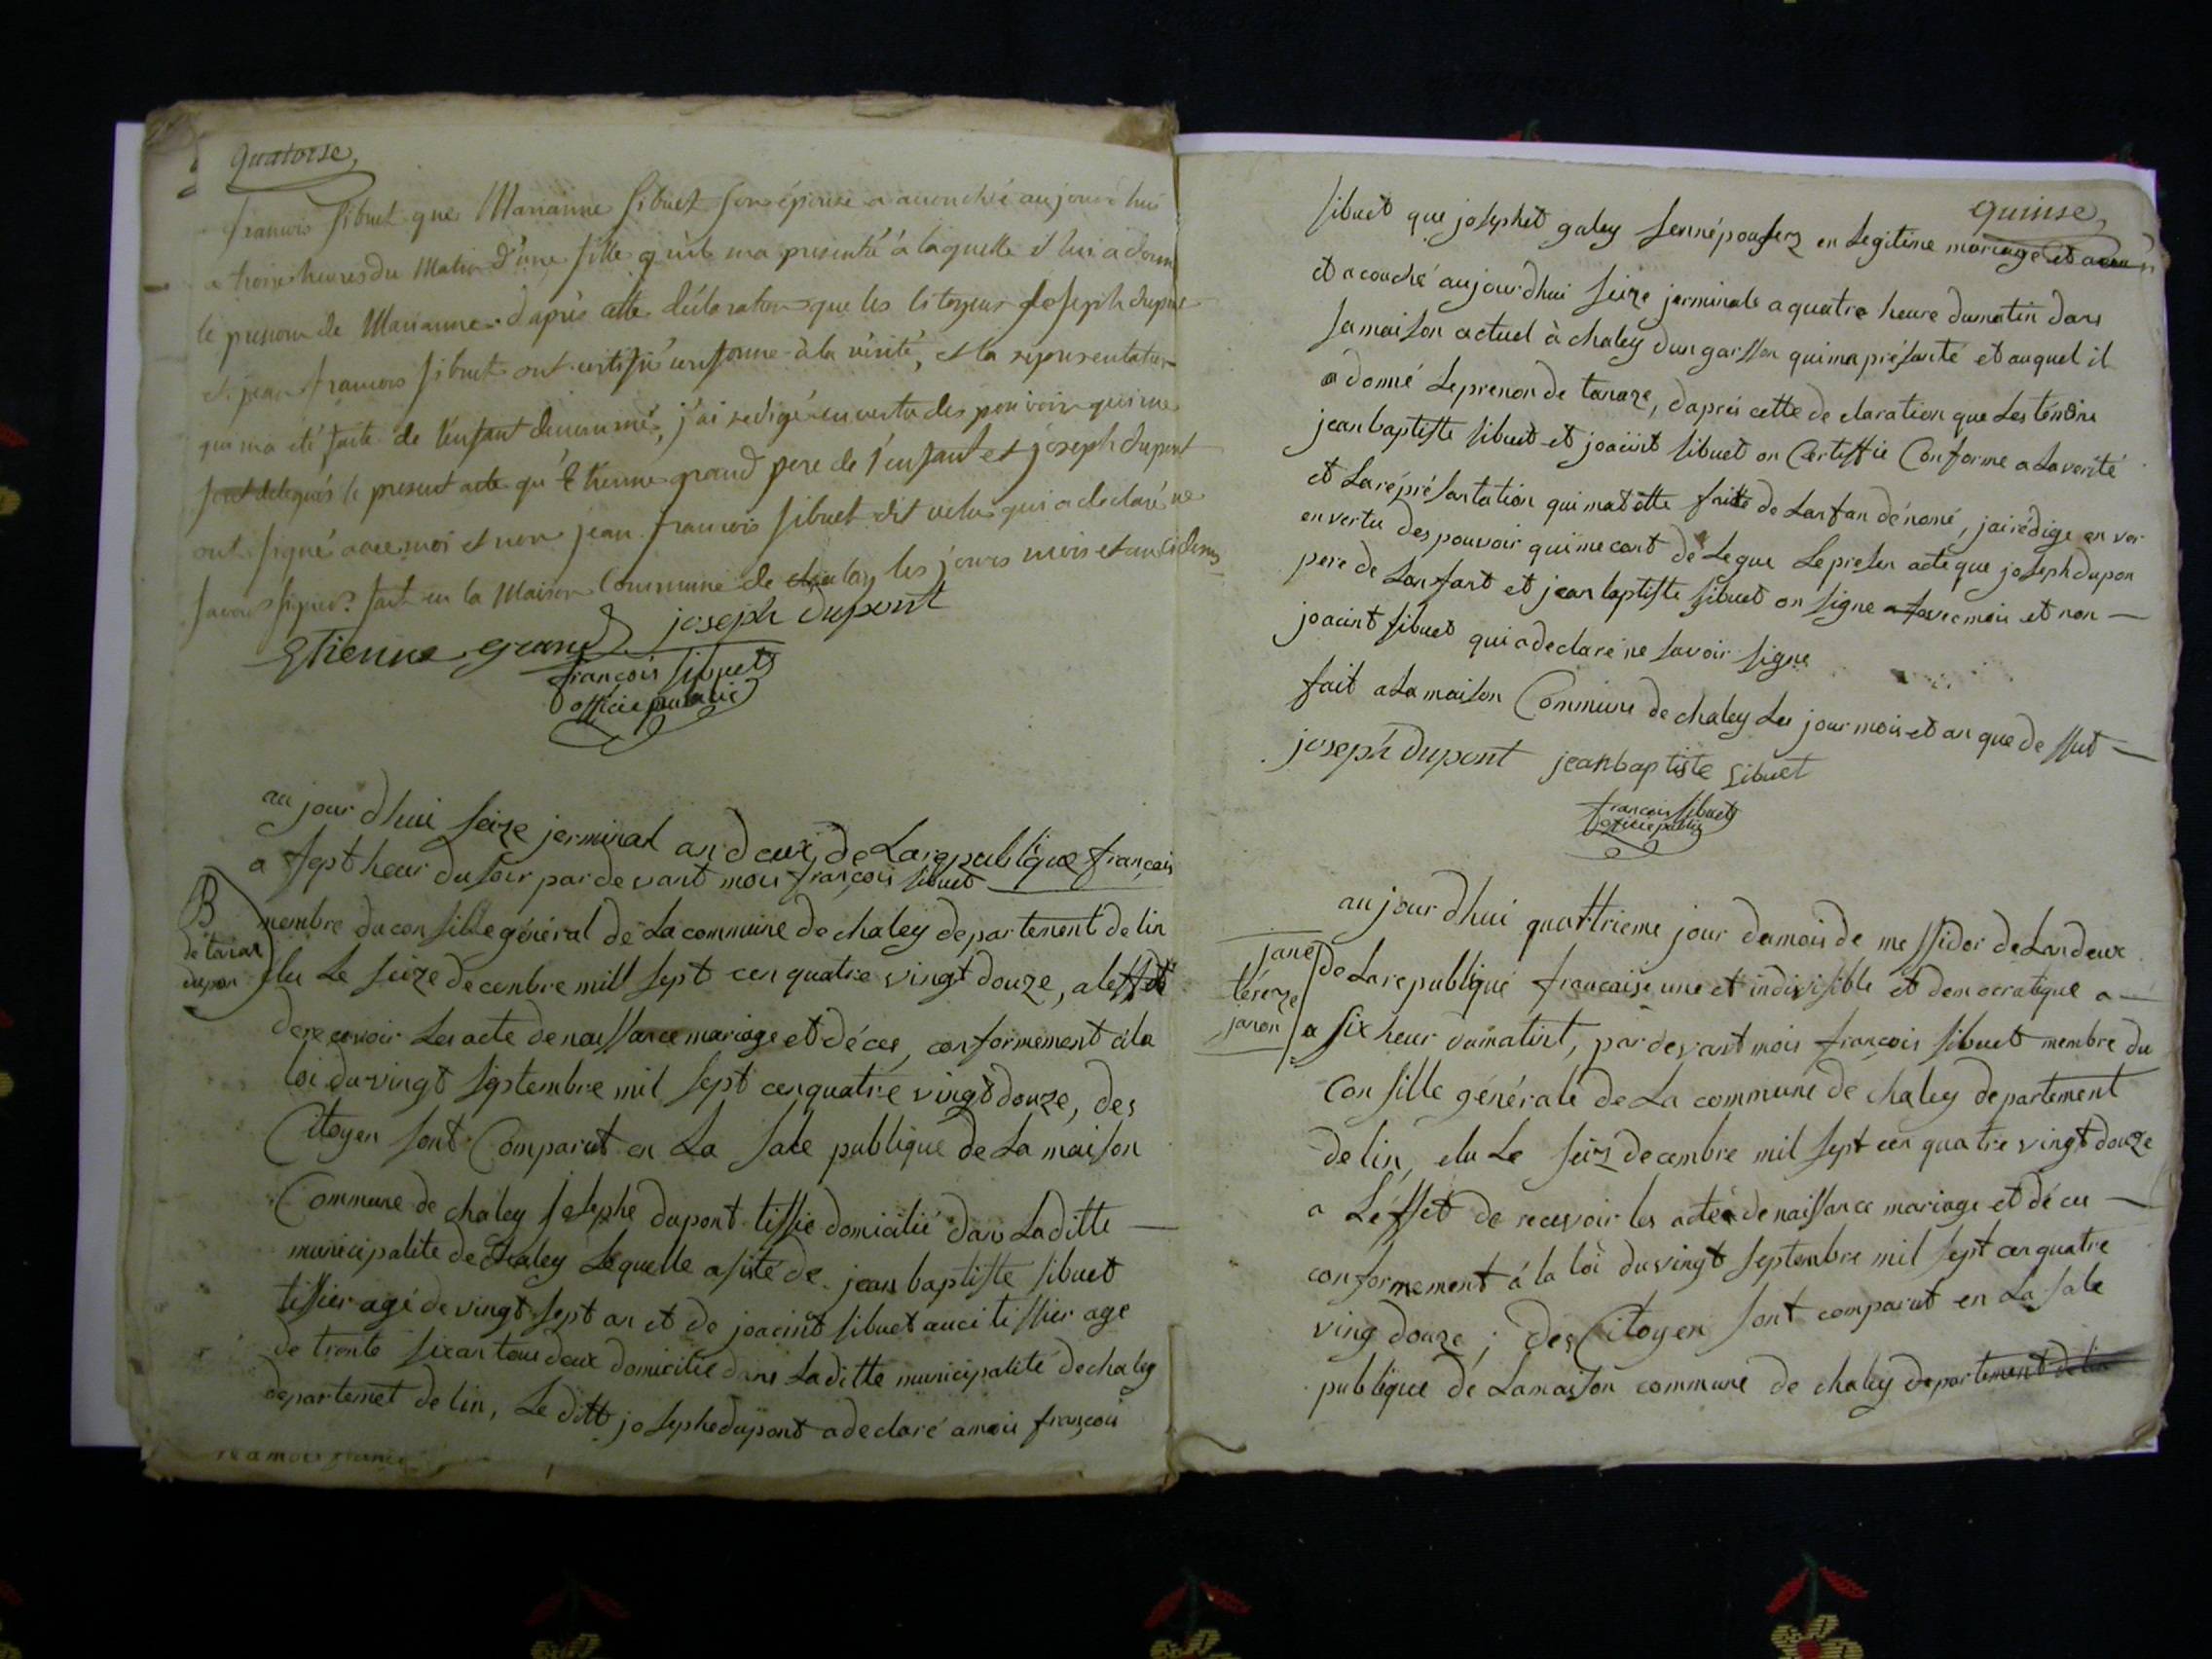 quatorse
francois sibuet que Marianne sibuet son épouse a accouchée aujourd'hui
a troise heures du Matin d'une fille qu'il ma presenté à laquelle il lui a donné
le prenom de Marianne. d'après cette déclaration que les citoyens joseph dupont
et jean francois sibuet ont certifié conforme à la vérité, et la représentation
qui ma été faite de l'enfant denommé, j'ai redigé en vertu des pouvoir qui me
sont delegués le present acte qu'Etienne grand pere de l'enfant et joseph dupont
ont signé avec moi et non jean francois sibuet dit velu qui a declaré ne
savoir signer. fait en la Maison Commune de chaley les jours mois et an ci dessus
Etienne grand joseph dupont
françois sibuet
officie public
aujourdhuii seize jerminal an deux de La republique françois
a sept heur du soir pardevant mois françois sibuet
membre du consille général de La commune de chaley departement de lin
B
de taraz
dupon
elu Le seize decembre mill sept cen quatre vingt douze, a leffet
de recevoir Les acte de naissance mariage et déces, conformement à la
loi du vingt septembre mil sept cen quatre vingt douze, des
Citoyen sont Comparut en La sale publique de La maison
Commune de chaley Josephe dupont tissie domicilié dans Laditte
municipalite de chaley Lequelle asisté de jean baptiste sibuet
tissier agé de vingt sept an et de joacint sibuet auci tissier age
de trente six an tous deux domicilie dans Laditte municipalité de chaley
departemet de lin, Leditt josephe dupont a declaré a mois françois
re a mois francoi
quinse
sibuet que josephet galey sonnépouserz en Legitime mariage et acou
et acouché aujourdhui seize jerminale a quatre heure dumatin dans
samaison actuel à chaley dun garsson quima présanté et auquel il
a donné Leprenon de taraze, daprés cette declaration que Les témoin
jean baptiste sibuet et joacint sibuet on Certiffie Conforme a La verité
et Lareprésantation quimatétte faitte de Lanfan dénomé, jairédige en ver
en vertu des pouvoir quime cont délegue Lepresen acte que joseph dupon
pere de Lanfant et jean baptiste sibuet on signe avecmois et non
joacint sibuet qui a declaré ne savoir signe
fait a La maison Commune de chaley Les jour mois et an que dessut
joseph dupont jean baptiste sibuet
francois sibuet
officie public
aujourdhui quattrieme jour dumois de messidor de Landeux
jane
téreze
janon
de Larepublique francaise une et indivisible et democratique a
a six heur dumatint, pardevant mois françois sibuet membre du
Consille générale de La commune de chaley departement
de lin, elu Le seiz decembre mil sept cen quatre vingt douze
a Léffet de recevoir les actes de naissance mariage et déces
conformement á la loi du vingt septembre mil sept cen quatre
ving douze ; des Citoyen sont comparut en La sale
publique de Lamaison commune de chaley departement de lin